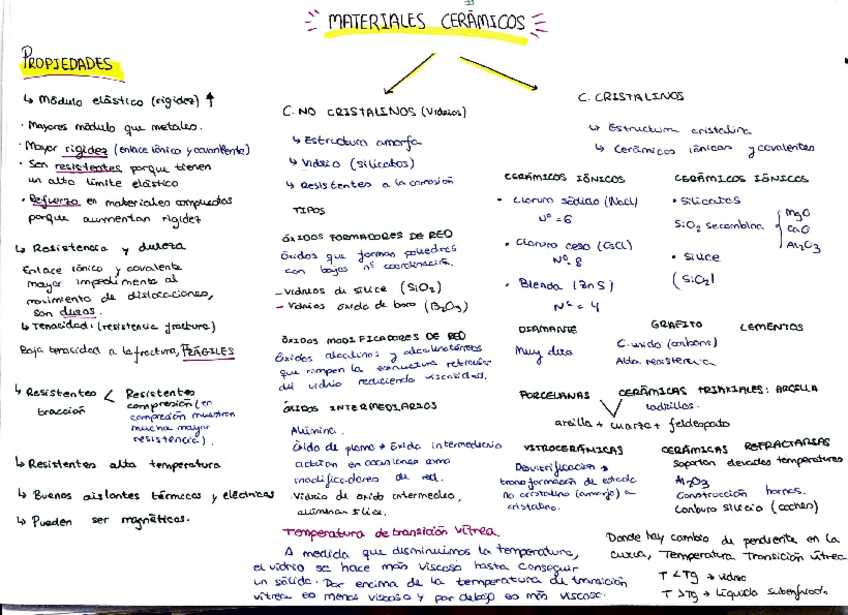 MATERIALES CERÁMICOS
PROPIEDADES
↳ Módulo elástico (rigidez) ↑
· Mayores módulo que metales.
· Mayor rigidez (enlace iónico y covalente)
· Son resistentes porque tienen
un alto límite elástico
· Refuerzo en materiales compuestos
porque aumentan rigidez
↳ Resistencia y dureza
Enlace iónico y covalente
mayor impedimento al
movimiento de dislocaciones,
son duros.
↳ Tenacidad: (resistencia fractura)
Baja tenacidad a la fractura, FRÁGILES
↳ Resistentes < Resistentes
tracción compresión (en
compresión muestran
mucha mayor
resistencia).
↳ Resistentes alta temperatura
↳ Buenos aislantes térmicos y eléctricos
↳ Pueden ser magnéticos.
C. NO CRISTALINOS (Vidrios)
↳ Estructura amorfa
↳ Vidrio (silicatos)
↳ Resistentes a la corrosión
TIPOS
ÓXIDOS FORMADORES DE RED
Óxidos que forman poliedros
con bajos nº coordinación.
- Vidrios de sílice (SiO2)
- Vidrios óxido de boro (B2O3)
ÓXIDOS MODIFICADORES DE RED
Óxidos alcalinos y alcalinotérreos
que rompen la estructura reticular
del vidrio reduciendo viscosidad.
ÓXIDOS INTERMEDIARIOS
Alúmina.
Óxido de plomo → Óxido intermediario
actúan en ocasiones como
modificadores de red.
Vidrio de óxido intermedio,
Temperatura de transición vítrea.
A medida que disminuimos la temperatura,
el vidrio se hace más viscoso hasta conseguir
un sólido. Por encima de la temperatura de transición
vítrea es menos viscoso y por debajo es más viscoso.
C. CRISTALINOS
↳ Estructura cristalina
↳ Cerámicos iónicos y covalentes
CERÁMICOS IÓNICOS
• Cloruro sódico (NaCl)
Nº = 6
• Cloruro ceso (CsCl)
Nº = 8
• Blenda (ZnS)
Nº = 4
CERÁMICOS IÓNICOS
• Silicatos
SiO2 se combina { MgO
CaO
Al2O3
• Sílice
(SiO2)
DIAMANTE
Muy duro
GRAFITO
C. unido (carbono)
Alta resistencia
CEMENTOS
PORCELANAS
CERÁMICAS TRIAXIALES: ARCILLA
ladrillos.
arcilla + cuarzo + feldespato
VITROCERÁMICAS
Desvitrificación →
transformación de estado
no cristalino (amorfo) a
cristalino.
CERÁMICAS REFRACTARIAS
Soportan elevadas temperaturas
Al2O3
Construcción hornos.
Carburo Silicio (coches)
Donde hay cambio de pendiente en la
curva, Temperatura Transición vítrea
T < Tg → vidrio
T > Tg → Líquido subenfriado